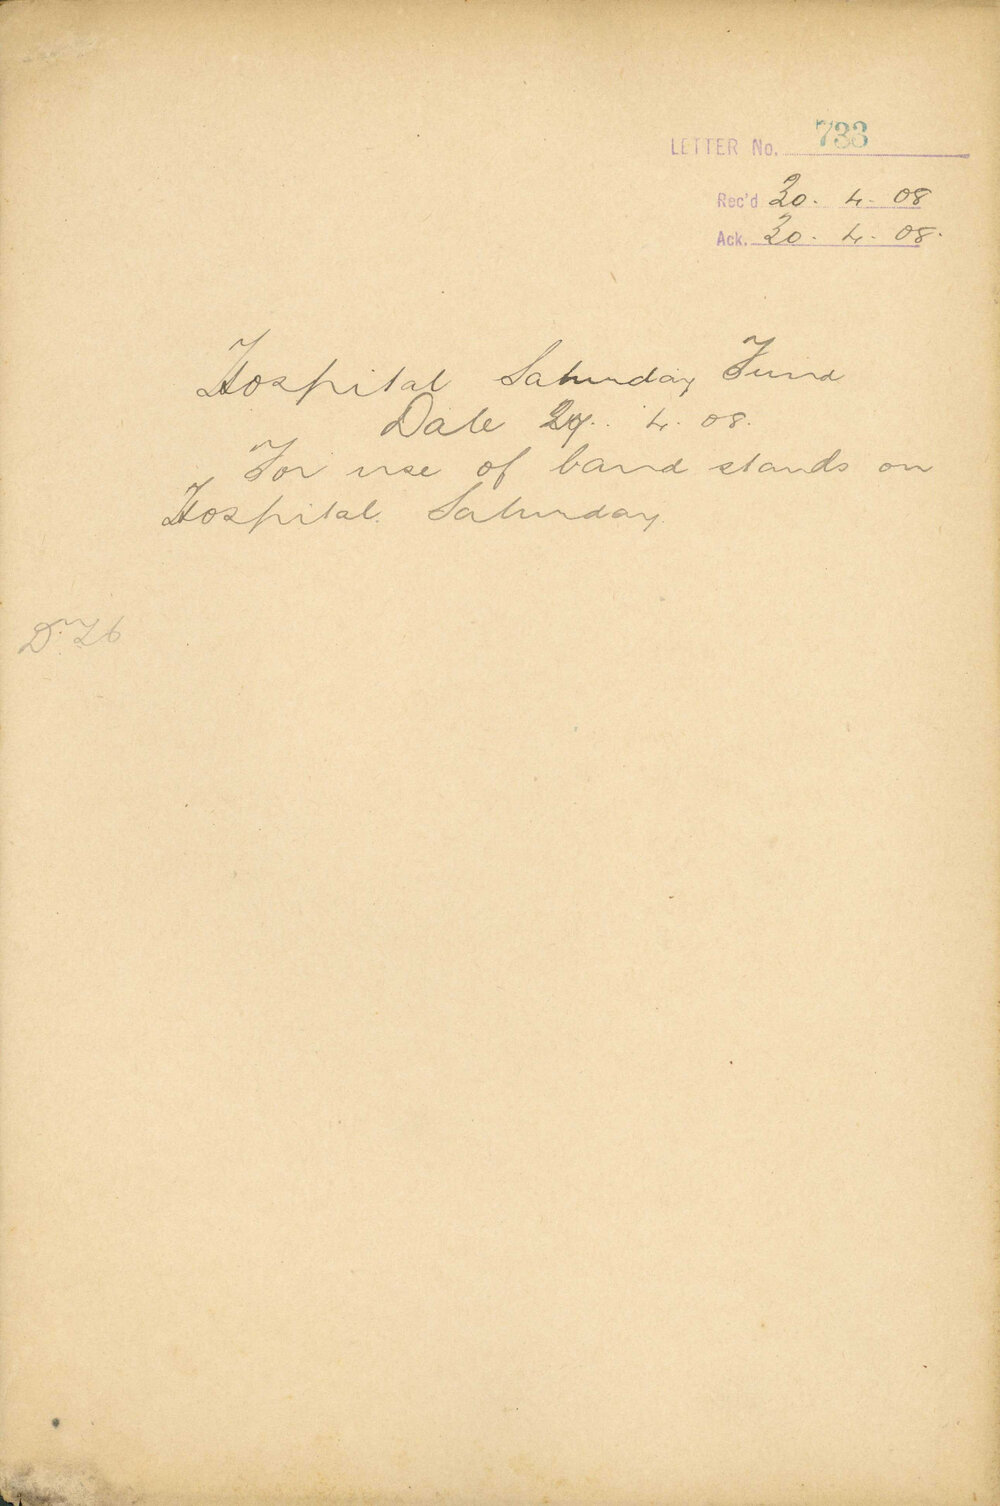 LETTER No. 733
Rec'd 30. 4. 08
Ack. 30. 4. 08.
Hospital Saturday Fund
Date 29. 4. 08.
For use of band stands on
Hospital Saturday